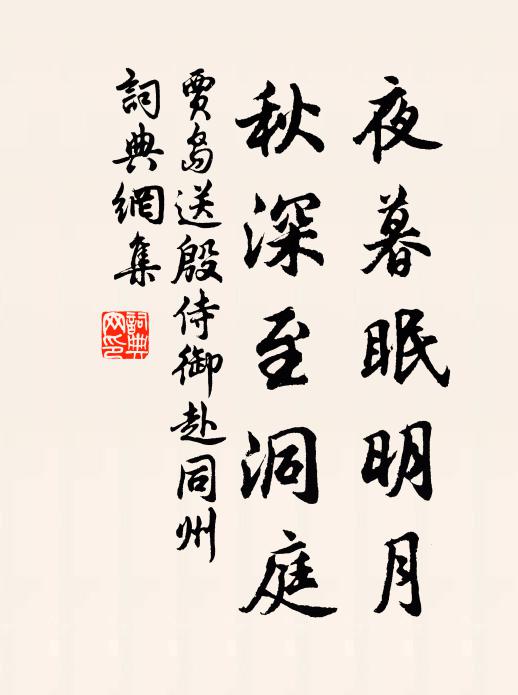 夜暮眠明月
秋深至洞庭
賈島送殷侍御赴同州
詞典網集
詞典網印